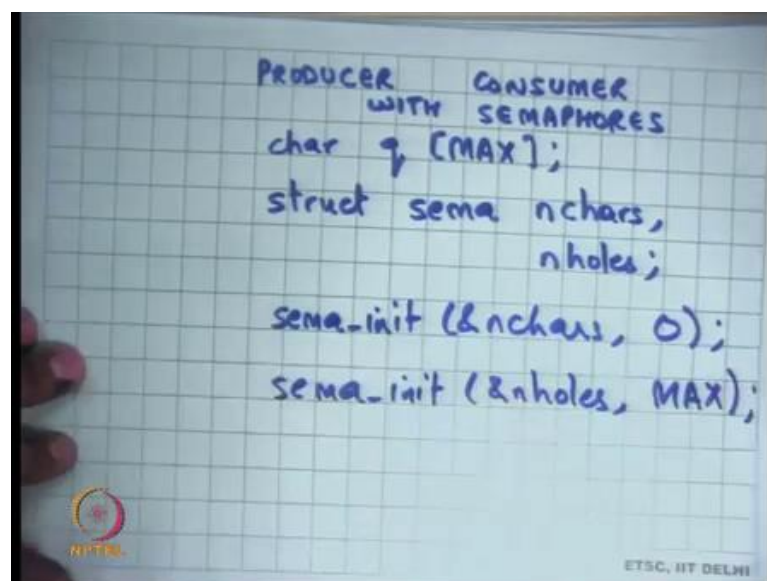 PRODUCER CONSUMER
WITH SEMAPHORES
char q [MAX];
struct sema nchars,
nholes;
sema_init (&nchars, 0);
sema_init (&nholes, MAX);
NPTEL
ETSC, IIT DELHI